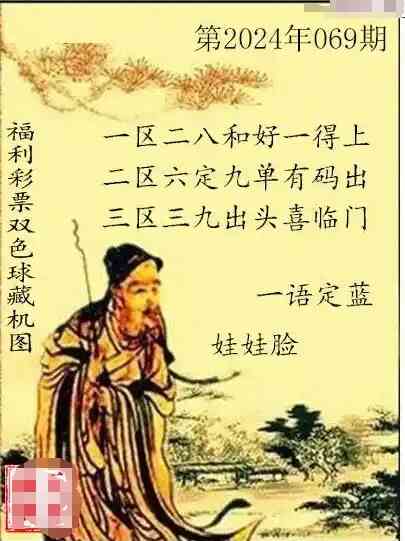 第2024年069期
福利彩票双色球藏机图
一区二八和好一得上
二区六定九单有码出
三区三九出头喜临门
一语定蓝
娃娃脸